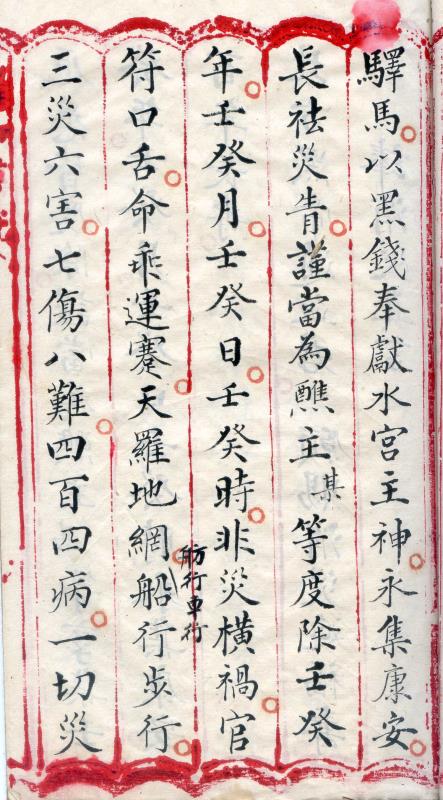 驛馬以黑錢奉獻水宫主神永集康安
長祛災眚謹當為醮主某等度除壬癸
年壬癸月壬癸日壬癸時非災橫禍官
符口舌命乖運蹇天羅地網船行步行
舫行車行
三災六害七傷八難四百四病一切災